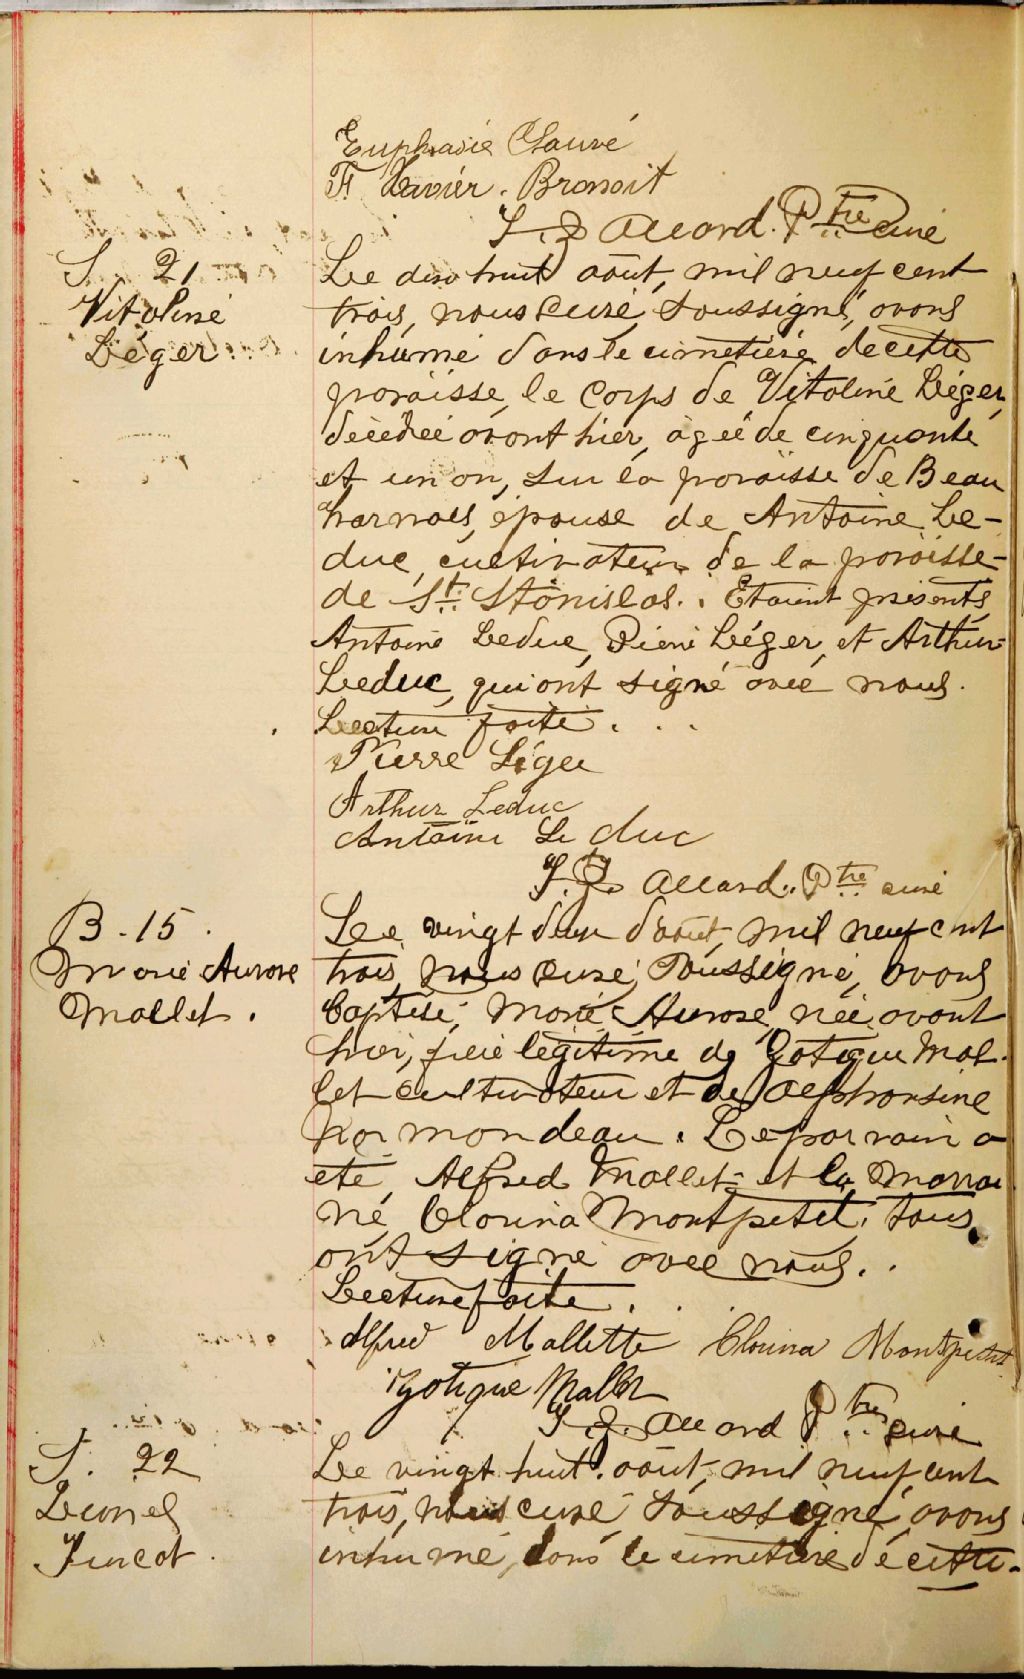 Euphrasie Sauvé
F Xavier. Bronsoit
J. J. Allard. Ptre curé
S. 21
Vitaline
Léger
Le dix huit août, mil neuf cent
trois, nous curé, soussigné, avons
inhumé dans le cimetière de cette
paroisse, le corps de Vitaline Léger,
décédée avant hier, agée de cinquante
et un an, sur la paroisse de Beau
harnois, épouse de Antoine Le-
duc, cultivateur de la paroisse
de St. Stanislas. Etaient présents,
Antoine Leduc, Pierre Léger, et Arthur
Leduc, qui ont signé avec nous.
Lecture faite. . .
Pierre Léger
Arthur Leduc
Antoine Le duc
J. J. Allard.. Ptre curé
B. 15.
Marie Aurore
Mallet.
Le vingt deux d'août, mil neuf cent
trois, nous curé, soussigné, avons
baptisé, Marie Aurore, née avant
hier, fille légitime de Zotique Mal-
let cultivateur et de Alphonsine
Raimondeau. Le parrain a
été, Alfred Mallet et la marrai
ne, Clorina Montpetit, tous
ont signé avec nous. .
Lecture faite. . .
Alfred Mallette Clorina Montpetit
Zotique Mallet
J. J. Allard Ptre curé
S. 22
Lionel
Turcot.
Le vingt huit. août, mil neuf cent
trois, nous curé soussigné, avons
inhumé, dans le cimetière de cette.